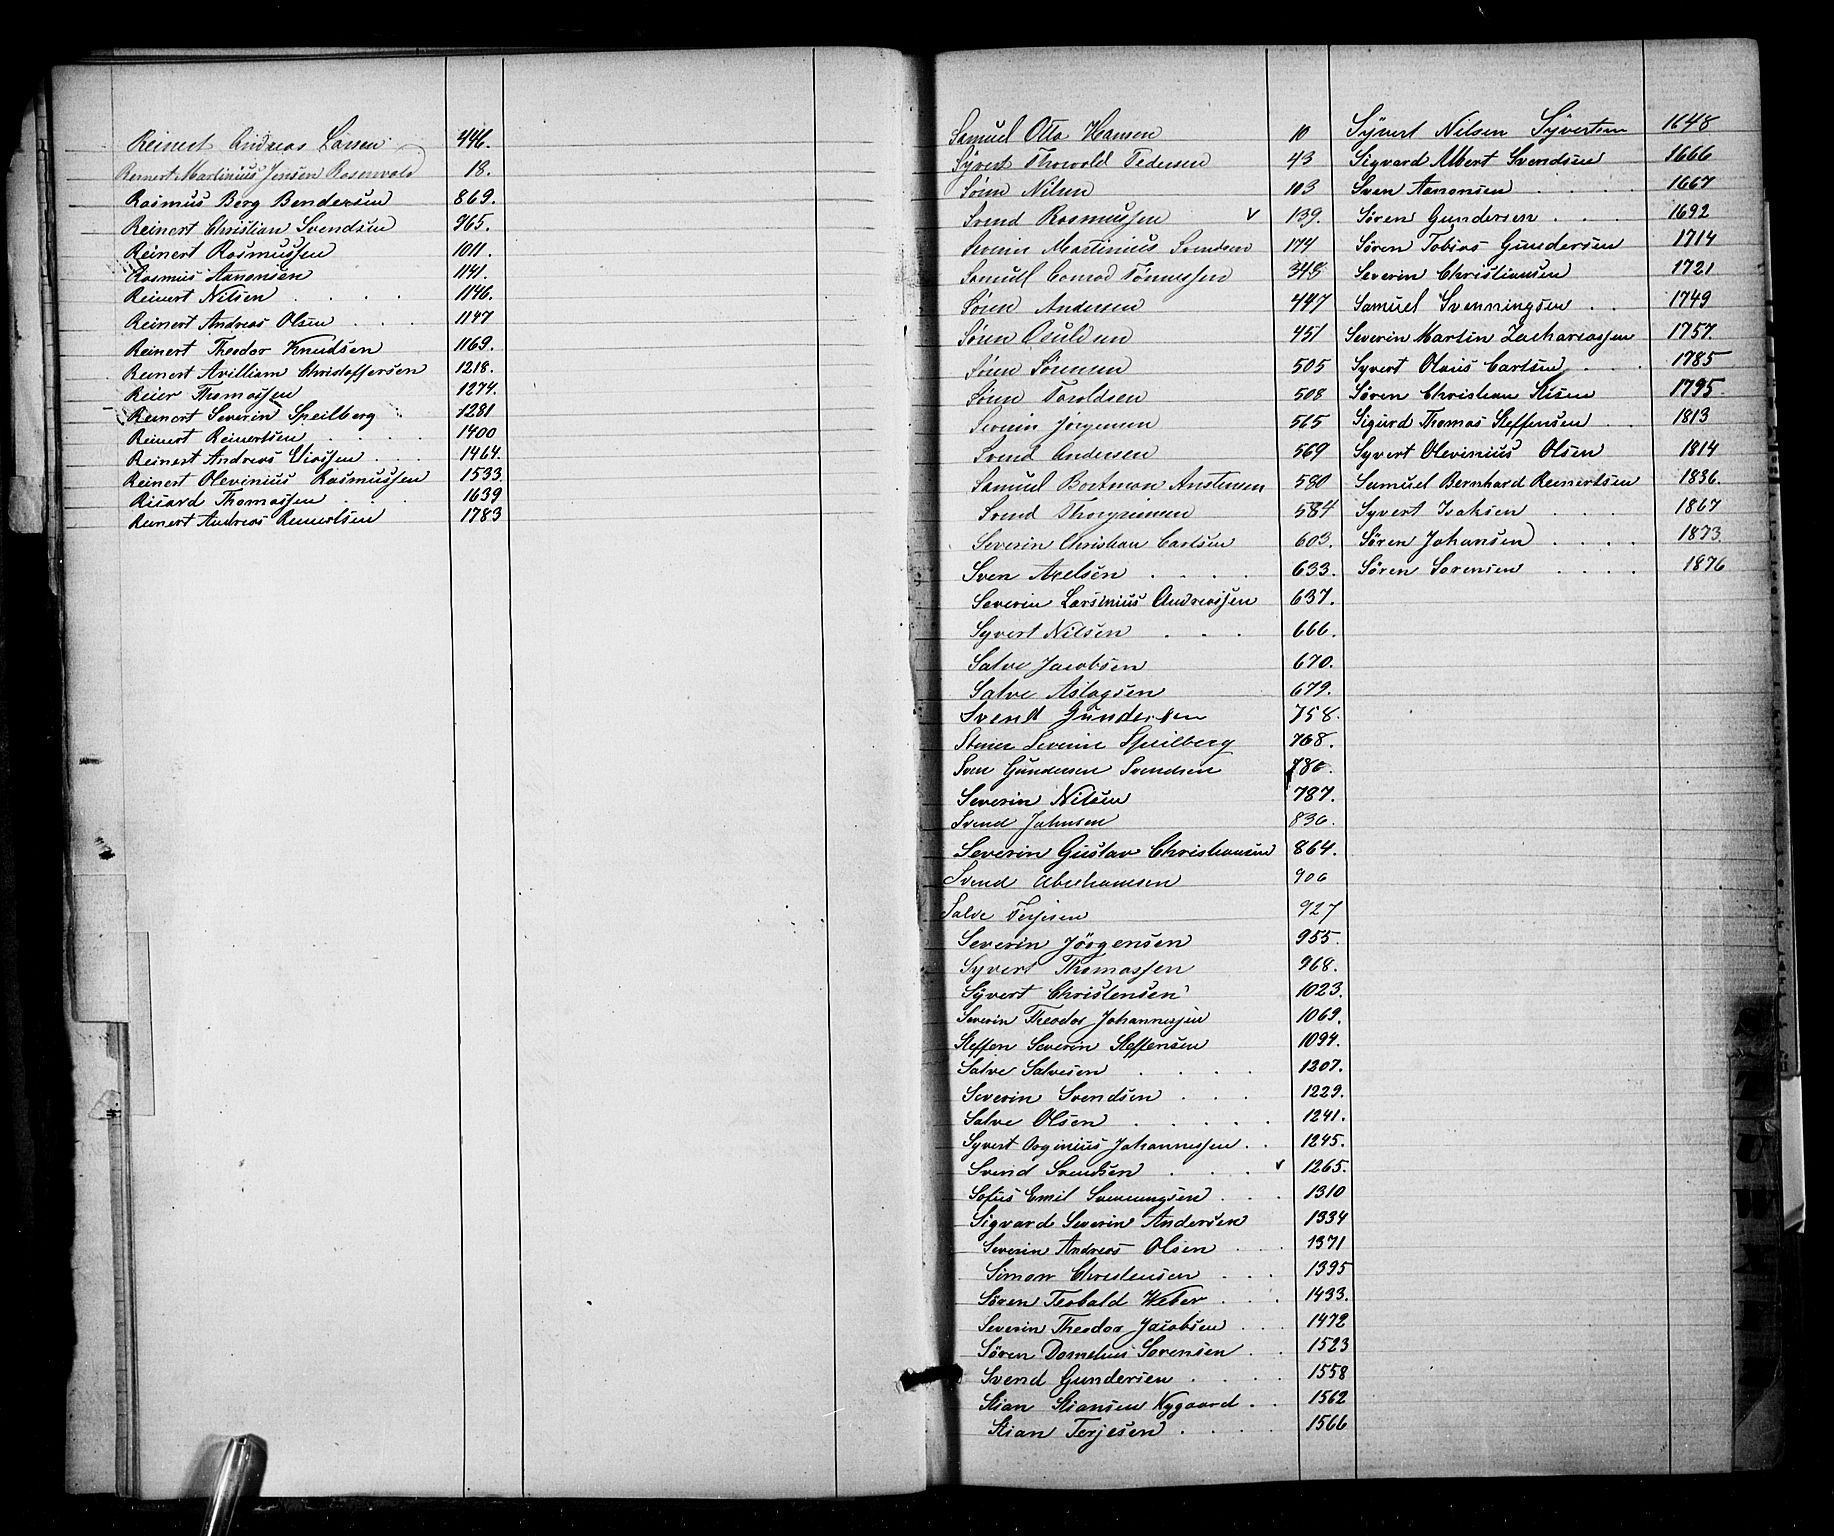 Reinert Andreas Larsen 446.
Reinert Martinius Jensen Rosenvold 18.
Rasmus Berg Bendersen 869.
Reinert Christian Svendsen 965.
Reinert Rasmussen 1011.
Rasmus Aanonsen 1141.
Reinert Nilsen 1146.
Reinert Andreas Olsen 1147
Reinert Theodor Knudsen 1169.
Reinert Avilliam Christoffersen 1218.
Reier Thomassen 1274.
Reinert Severin Speilberg 1281
Reinert Reinertsen 1400
Reinert Andreas Eliassen 1464.
Reinert Olevinius Rasmussen 1533
Risard Thomassen 1639
Reinert Andreas Reinertsen 1783
Samuel Otto Hansen 10
Syvert Thorvald Pedersen 43
Sören Nilsen 103
Svend Rasmussen v 139.
Severin Martinius Svendsen 174
Samuel Conrad Tönnessen 345
Sören Andersen 447
Sören 451
Sören Sörensen 505
Sören Taraldsen 508
Severin Jörgensen 565
Svend Andersen 569
Samuel Boetman Anstensen 580
Svend Thorgrimsen 584
Severin Christian Carlsen 603.
Sven Axelsen 633.
Severin Larsinius Andreassen 637.
Syvert Nilsen 666.
Salve Jacobsen 670.
Salve Aslagsen 679.
Svend Gundersen 758.
Severin Speilberg 768.
Sven Gundersen Svendsen 786.
Severin Nilsen 787.
Svend Johnsen 836.
Severin Gustav Christiansen 864.
Svend Abrahamsen 906
Salve Terjesen 927
Severin Jörgensen 955.
Syvert Thomassen 968.
Syvert Christensen 1023.
Severin Theodor Johannessen 1069.
Steffen Severin Steffensen 1094.
Salve Salvesen 1207.
Severin Svendsen 1229.
Salve Olsen 1241.
Syvert Orginius Johannessen 1245.
Svend Svendsen v 1265.
Sofus Emil Svenningsen 1310
Sigvard Severin Andersen 1334
Severin Andreas Olsen 1371
Simon Christensen 1395
Sören Teobald Weber 1433.
Severin Theodor Jacobsen 1472
Sören Dornelius Sorensen 1523
Svend Gundersen 1558
Stian Stiansen Nygaard 1562
Stian Terjesen 1566
Syvert Nilsen Syvertsen 1648
Sigvard Albert Svendsen 1666
Sven Aanonsen 1667
Sören Gundersen 1692
Sören Tobias Gundersen 1714
Severin Christiansen 1721
Samuel Svenningsen 1749
Severin Martin Zachariassen 1757.
Syvert Olaus Carlsen 1785
Sören Christian Olsen 1795.
Sigurd Thomas Steffensen 1813
Syvert Olevinius Olsen 1814
Samuel Bernhard Reinertsen 1836.
Syvert Isaksen 1867
Sören Johansen 1873.
Sören Sorensen 1876
S
T
U
W